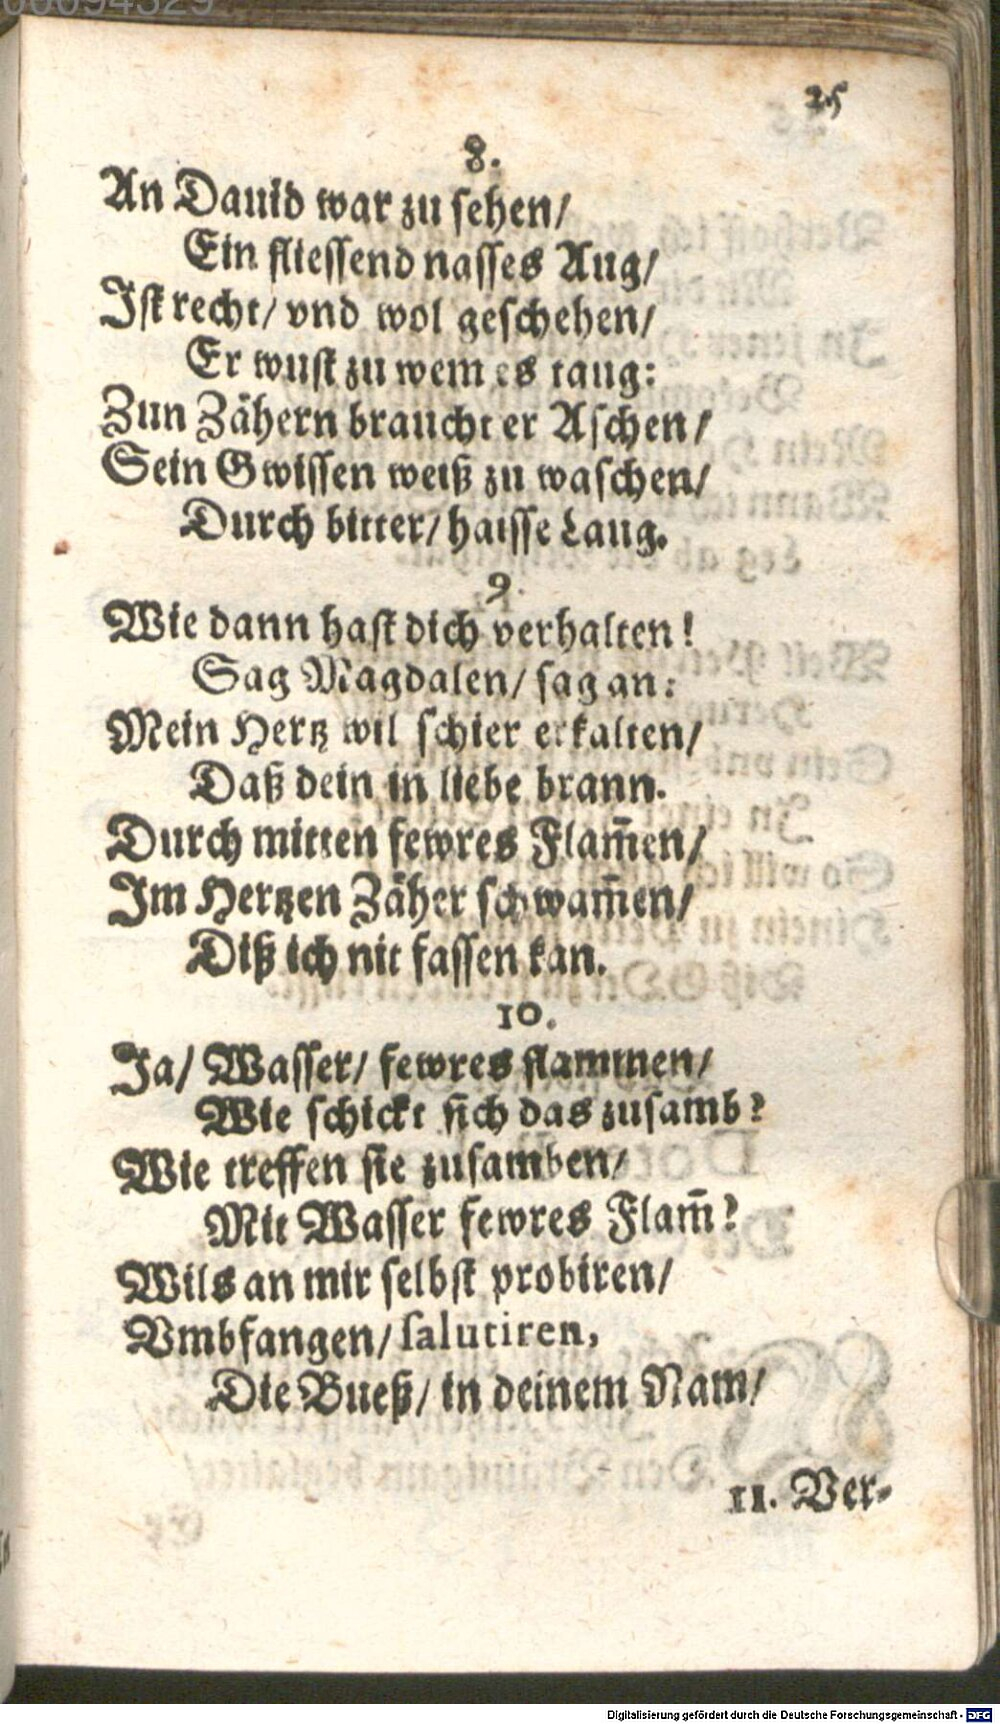 25
8.
An Dauid war zu sehen/
Ein fliessend nasses Aug/
Ist recht/ vnd wol geschehen/
Er wust zu wem es taug:
Zun Zähern braucht er Aschen/
Sein Gwissen weiß zu waschen/
Durch bitter/ haisse Laug.
9.
Wie dann hast dich verhalten!
Sag Magdalen/ sag an:
Mein Hertz wil schier erkalten/
Daß dein in liebe brann.
Durch mitten fewres Flam̄en/
Im Hertzen Zäher schwam̄en/
Diß ich nit fassen kan.
10.
Ja/ Wasser/ fewres flammen/
Wie schickt sich das zusamb?
Wie treffen sie zusamben/
Mit Wasser fewres Flam̄?
Wils an mir selbst probiren/
Vmbfangen/ salutiren,
Die Bueß/ in deinem Nam/
11. Ver-
Digitalisierung gefördert durch die Deutsche Forschungsgemeinschaft - DFG